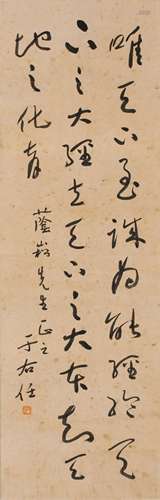 唯天下至誠為能經綸天
下之大經立天下之大本知天
地之化育
蔭崧先生正之
于右任